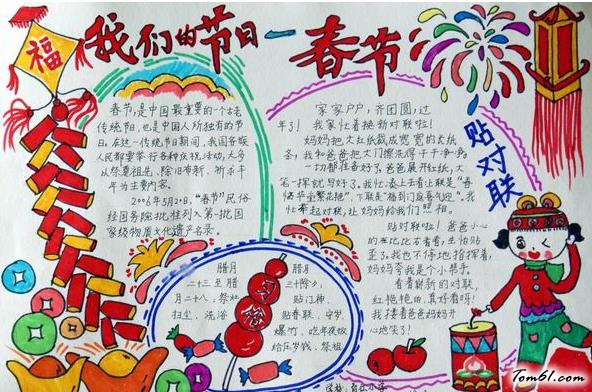 福
我们的节日一春节
春节,是中国最重要的一个古老
传统节,也是中国人所独有的节
日。在这一传统节日期间,我国各族
人民都要举行各种庆祝活动,大多
以祭奠祖先、除旧布新、祈求丰
年为主要内容。
2006年5月20日,“春节”民俗
经国务院批准列入第一批国
家级物质文化遗产名录。
家家户户,齐团圆,过
年了!我家忙着换新对联啦!
妈妈把大红纸裁成宽宽的长纸
条,我和爸爸把大门擦洗得干干净净,
一切都准备好了。爸爸展开红纸,大
笔一挥就写好了。我忙凑上去看上联是“春
临华堂繁花艳”,下联是“福到门庭喜气迎”。我
忙拿起对联,让妈妈给我们照相。
贴对联
贴对联啦!爸爸小心
的
比右看看,生怕贴
歪了。我也不停地指挥着,
妈妈夸我是个小帮手。
看着崭新的对联,
红艳艳的,真好看呀!
我搂着爸爸妈妈开
心地笑了!
腊月
二十三至腊
月二十八,祭灶
扫尘、洗浴
腊月
三十除夕,
贴门神、
贴春联、守岁、
爆竹、吃年夜饭
给压岁钱、祭祖
Tom61.com